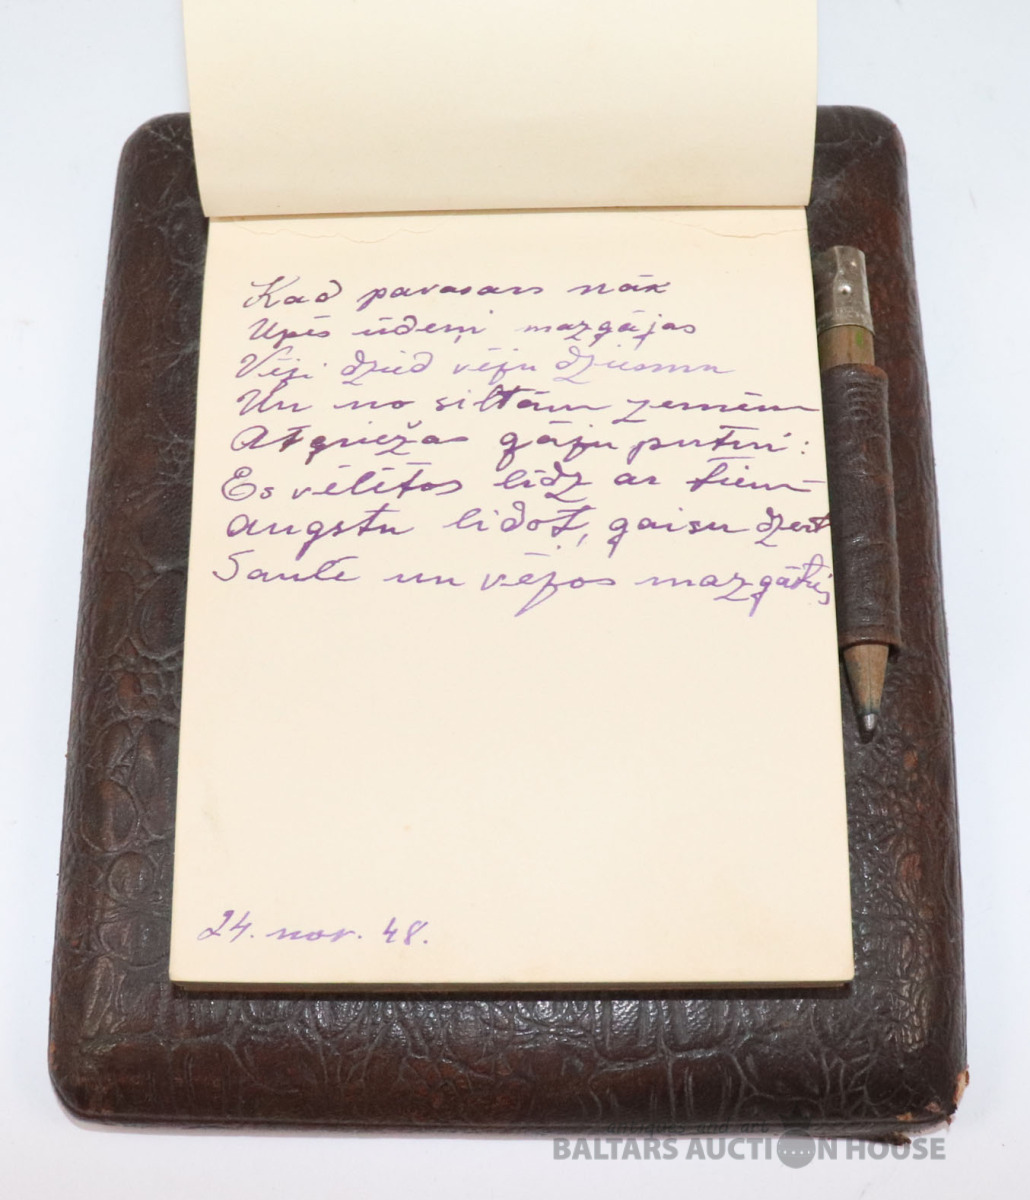 Kad pavasars nāk
Upēs ūdeņi mazgājas
Vēji dzied vēju dziesmu
Un no siltām zemēm
Atgriežas gāju putni:
Es vēlētos līdz ar tiem
augstu lidot, gaisu dzert
Saulē un vējos mazgāties
24. nov. 48.
antiques and art
BALTARS AUCTION HOUSE